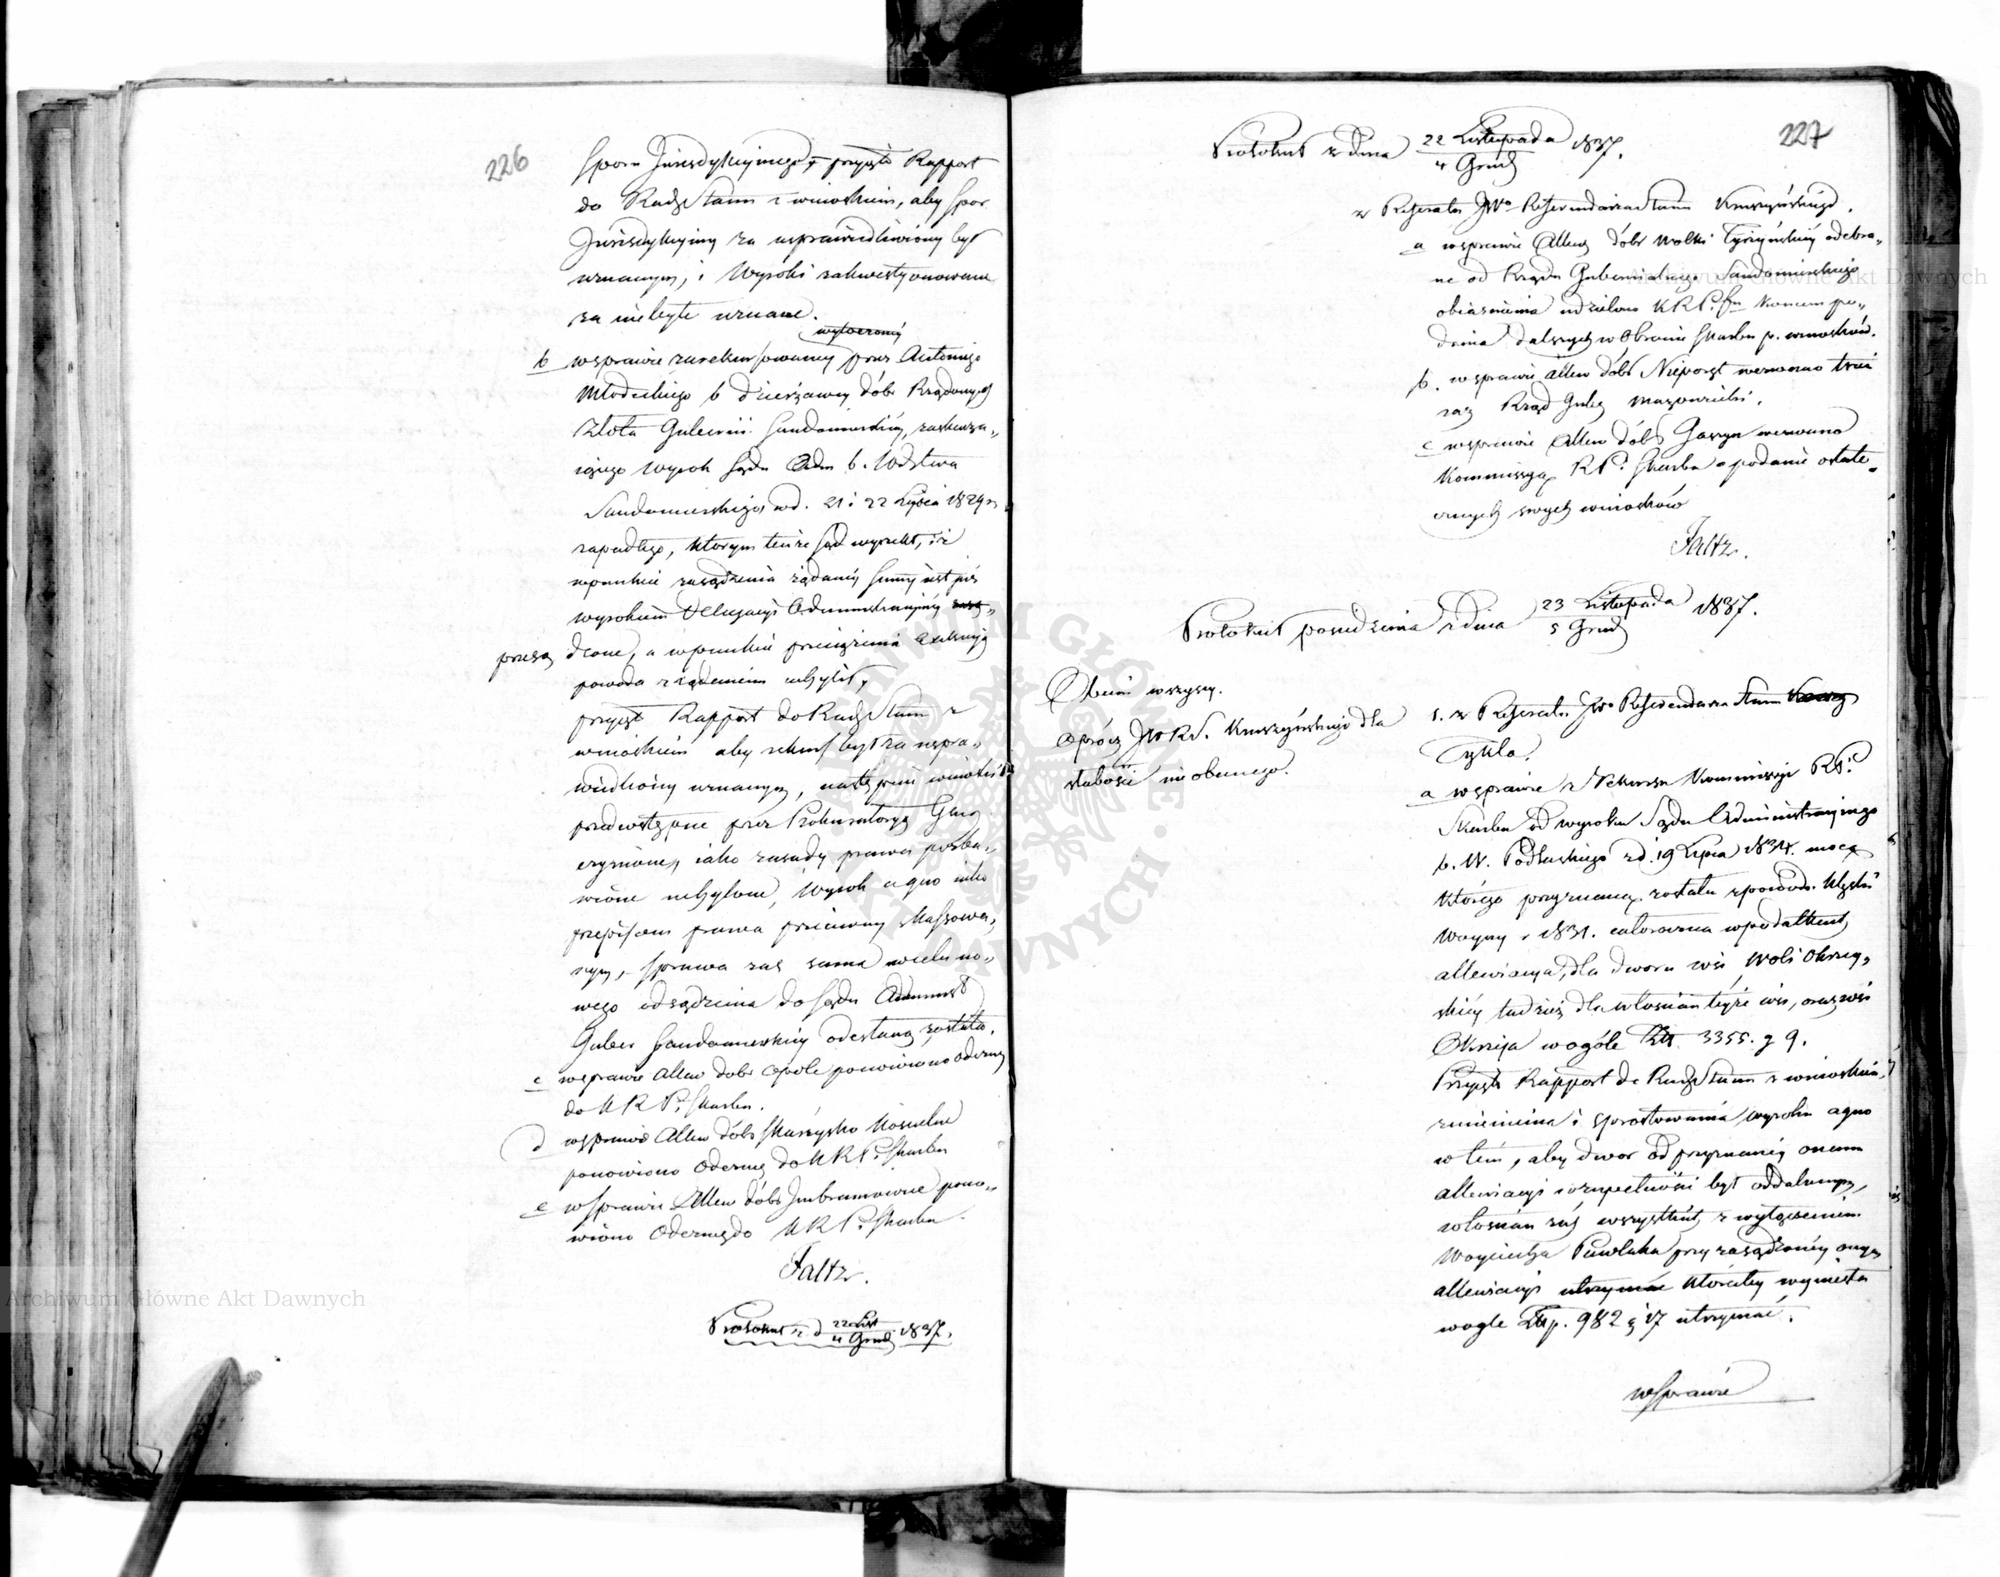 226
Sporu Jurisdykcyjnego, przyięto Rapport
do Rady Stanu z wnioskiem, aby Spor
Jurisdykcyjny za usprawiedliwiony był
uznanym, i Wyroki zakwestyonowane
za niebyłe uznane.
wytoczonéy
b w sprawie zarekursowanéy przez Antoniego
Młodeckiego b Dzierżawcę dóbr Rządowych
Złota Gubernii Sandomierskiéy, zaskarza„
iącego Wyrok Sądu Adm b. Wdztwa
Sandomierskiego, w d. 21 i 22 Lipca 1829 r
zapadłego, którym tenże Sąd wyrzekł, iż
w punkcie zasądzenia żądanéy Summy iest iuż
wyrokiem Delegacyi Administracyjnéy zasą„
przesą dzone, a w punkcie
powoda z żądaniem uchylił,
przyięto Rapport do Rady Stanu z
wnioskiem aby rekurs był za uspra„
wiedliwiony uznanym, następnie wnioski
przedwstępne przez Prokuratoryą Glną
czynione, iako zasady prawa pozba„
wione uchylone, Wyrok a quo iako
przepisom prawa przeciwny skassowa„
nym, Sprawa zaś sama w celu no„
wego odsądzenia do Sądu Administ
Guber Sandomierskiéy odesłaną została.
c w sprawie Allew dóbr Opole ponowiono Odezwę
do KRP. Skarbu.
d w sprawie Allew dóbr Skarzysko Kościelne
ponowiono Odezwę do KRP. Skarbu
e w Sprawie Allew dóbr Imbramowice pono„
wiono Odezwę do KRP. Skarbu.
Faltz.
Protokuł z d 22 List / 4 Grud 1837.
227
Protokuł z dnia 22 Listopada / 4 Grud 1837.
z Referatu JWo Referendarza Stanu Kruszyńskiego.
a w sprawie Allew dóbr Wolki Tyrzyńskiéy odebra„
ne od Rządu Gubernialnego Sandomierskiego
obiasnienia udzielono KRP. Sk koncem po„
dania dalszych w Obronie Skarbu p. wniosków.
b. w sprawie allew dóbr Nieporęt wezwano trzeci
raz Rząd Guber Mazowiecki.
c w sprawie Allew dóbr Gaszyn wezwano
Kommissyą RP. Skarbu o podanie ostate„
cznych swych wniosków
Faltz.
Protokuł posiedzenia z dnia 23 Listopada / 5 Grud 1837.
Obecni wszyscy.
oprócz JW RS. Kruszyńskiego dla
słabości nieobecnego.
1. z Referatu JWo Referendarza Stanu
Cykla.
a w sprawie z Rekursu Kommissyi RP.
Skarbu od wyroku Sądu Administracyjnego
b. W. Podlaskiego z d. 19 Lipca 1834. mocą
którego przyznaną została z powodu klęski
Woyny r 1831. całoroczna w podatkach
allewiacya, dla dworu wsi Woli Okrzey„
skiéy tudzież dla włościan teyże wsi, oraz wsi
Okrzeja w ogóle Złt 3355. g 9.
Przyięto Rapport do Rady Stanu z wnioskiem,
zmienienia i sprostowania wyroku a quo
w tém, aby dwór od przyznanéy onemu
allewiacyi w zupełności był oddalonym,
włościan zaś wszystkich z wyłączeniem
Woyciecha Pawlaka przy zasądzonéy onym
allewiacyi utrzymać któraby wyniosła
wogle Złp. 982 g 17 utrzymać.
w Sprawie